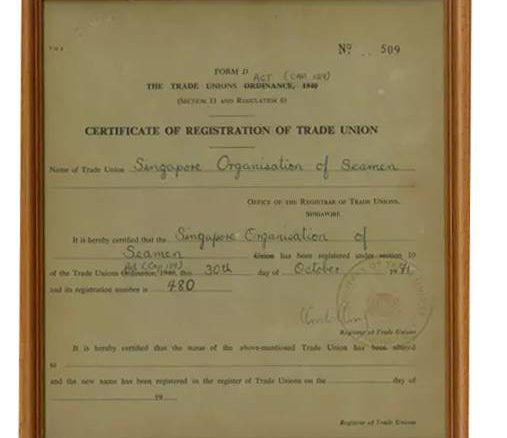 Nº .. 509
FORM D
ACT (CAP 129)
THE TRADE UNIONS ORDINANCE, 1940
(SECTION 13 AND REGULATION 6)
CERTIFICATE OF REGISTRATION OF TRADE UNION
Name of Trade Union Singapore Organisation of Seamen
OFFICE OF THE REGISTRAR OF TRADE UNIONS,
SINGAPORE
It is hereby certified that the Singapore Organisation of
Seamen Union has been registered under section 10
Act (Cap 129)
of the Trade Unions Ordinance, 1940, this 30th day of October 1971
and its registration number is 480
Registrar of Trade Unions
It is hereby certified that the name of the above-mentioned Trade Union has been altered
to
and the new name has been registered in the register of Trade Unions on the day of
19
Registrar of Trade Unions